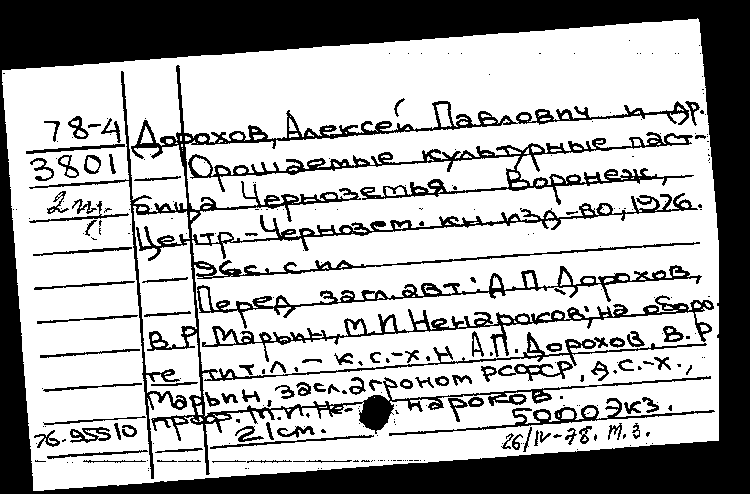 78-4 Дорохов, Алексей Павлович и др.
3801 Орошаемые культурные паст-
бища Черноземья. Воронеж,
Центр.-Чернозем. кн. изд-во, 1976.
96 с. с ил.
Перед загл. авт.: А.П. Дорохов,
В.Р. Марьин, М.П. Ненароков; на оборо-
те тит. л. - к.с.-х.н. А.П. Дорохов, В.Р.
Марьин, засл. агроном РСФСР, д.с.-х.,
проф. М.П. Не- нароков.
21 см. 5000 экз.
26/IV-78.